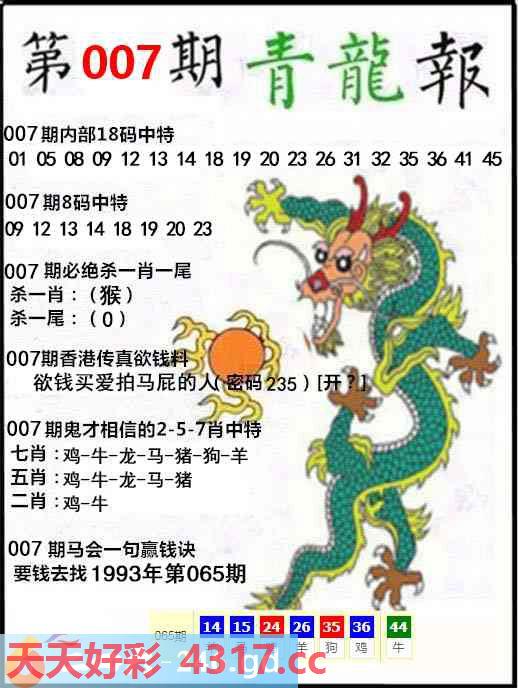 第007期青龍報
007期内部18码中特
01 05 08 09 12 13 14 18 19 20 23 26 31 32 35 36 41 45
007期8码中特
09 12 13 14 18 19 20 23
007期必绝杀一肖一尾
杀一肖：（猴）
杀一尾：（0）
007期香港传真欲钱料
欲钱买爱拍马屁的人（密码235）[开？]
007期鬼才相信的2-5-7肖中特
七肖：鸡-牛-龙-马-猪-狗-羊
五肖：鸡-牛-龙-马-猪
二肖：鸡-牛
007期马会一句赢钱诀
要钱去找1993年第065期
14 15 24 26 35 36 44
065期 羊 狗 鸡 牛
天天好彩 4317.cc